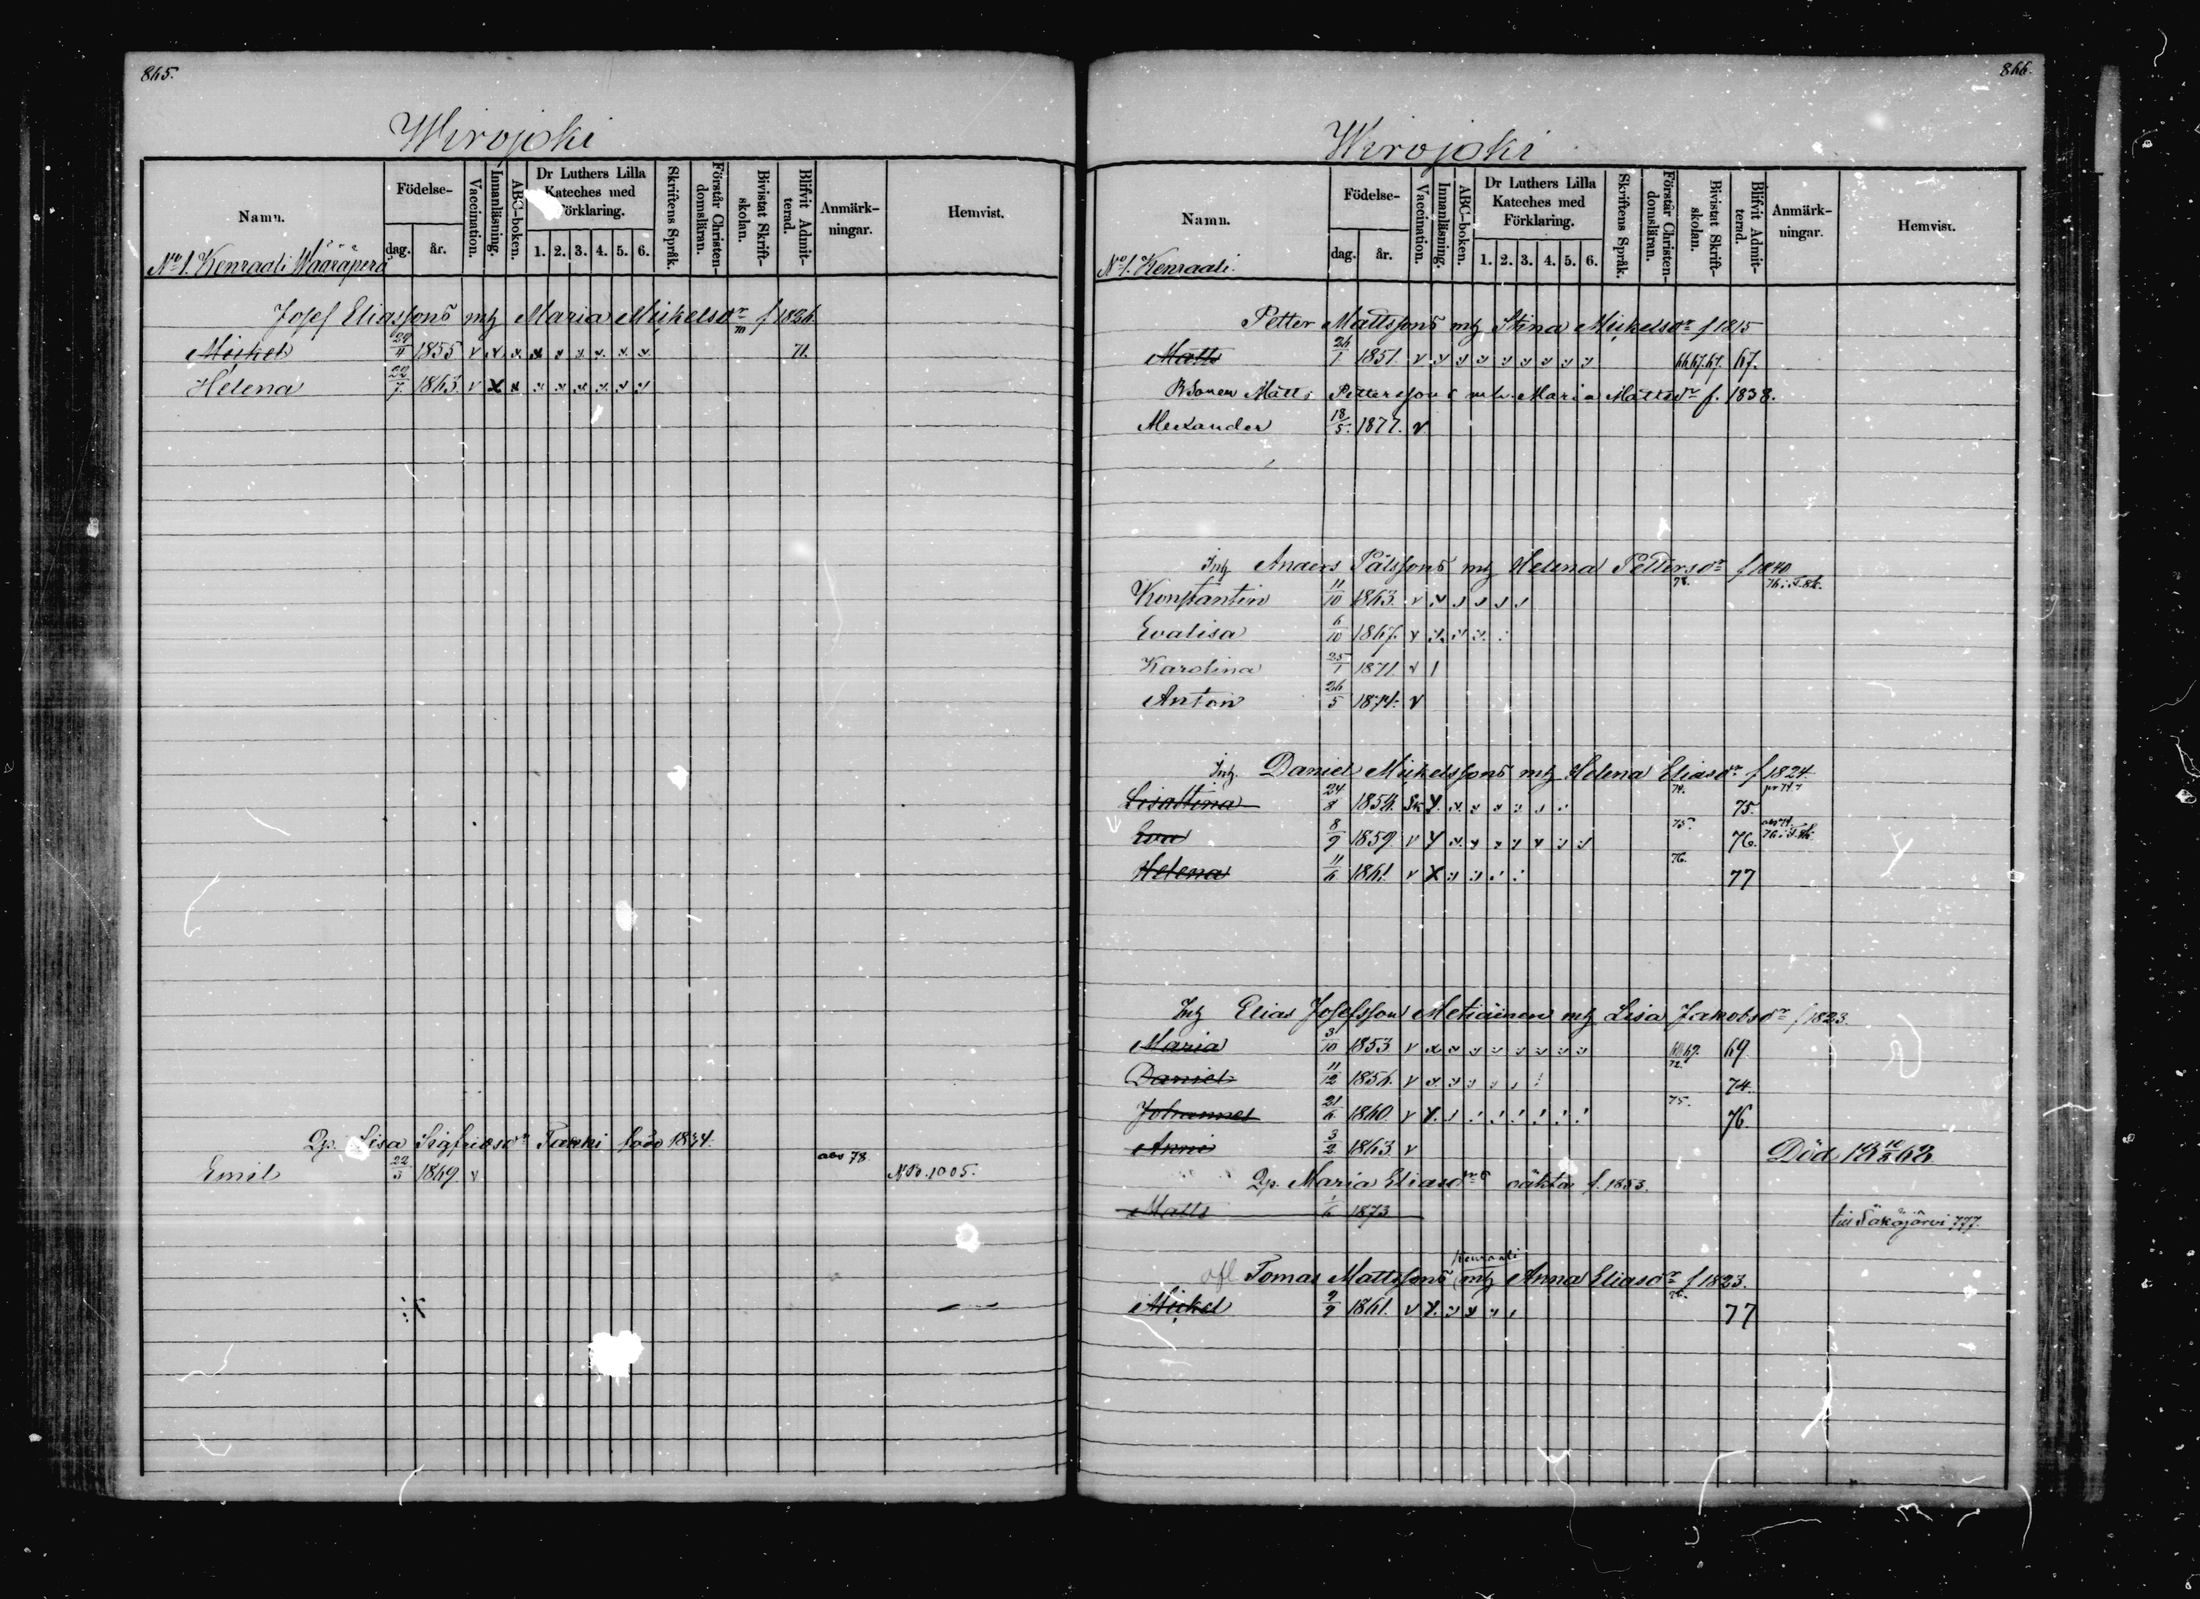 865.
Wirojoki
Namn.
Födelse-
dag.
år.
Vaccination.
Innanläsning.
ABC-boken.
Dr Luthers Lilla Kateches med Förklaring.
1. 2. 3. 4. 5. 6.
Skriftens Språk.
Förstår Christendomsläran.
Bivistat Skriftskolan.
Blifvit Admitterad.
Anmärkningar.
Hemvist.
No 1. Kenraali Wääräperä
Josef Eliassons mh Maria Mickelsdr f 1826
Mickel 29/11 1855 v 71.
Helena 22/7. 1863. v
Qp. Lisa Sigfridsdr Tanni född 1834.
Emil 22/3 1869. v abs 78 N.B. 1005.
866.
Wirojoki
Namn.
Födelse-
dag.
år.
Vaccination.
Innanläsning.
ABC-boken.
Dr Luthers Lilla Kateches med Förklaring.
1. 2. 3. 4. 5. 6.
Skriftens Språk.
Förstår Christendomsläran.
Bivistat Skriftskolan.
Blifvit Admitterad.
Anmärkningar.
Hemvist.
No 1. Kenraali.
Petter Mattssons mh Stina Mickelsdr f 1815
Matts 26/1 1851. v 66.67.67. 67.
B Sonen Matts Petterssons mh. Maria Mattsdr f. 1838.
Alexander 18/5. 1877. v
Inh Anders Pålssons mh Helena Pettersdr f 1840
Konstantin 11/10 1863. v 78. 76 i T.8k.
Evalisa 6/10 1867. v
Karolina 25/1 1871 v
Anton 26/5 1874. v
Inh. Daniel Mickelssons mh Helena Eliasdr f 1824
Lisastina 24/8 1856. 74. 75.
Eva 8/9 1859 v 75. 76.
Helena 11/6 1861. v 76. 77
Inh Elias Josefsson Metiäinen mh Lisa Jakobsdr f 1823.
Maria 3/10 1853 v 69.
Daniel 11/12 1856. v 72. 74.
Johannes 21/6 1860. v 75. 76.
Anni 3/2 1863 v Död
Qp. Maria Eliasdrs oäkta f. 1853.
Matts 1/6 1873 till Säkäjärvi 777.
Kenraali
afl Tomas Mattssons mh Anna Eliasdr f 1823.
Mickel 9/9 1861. v 76. 77